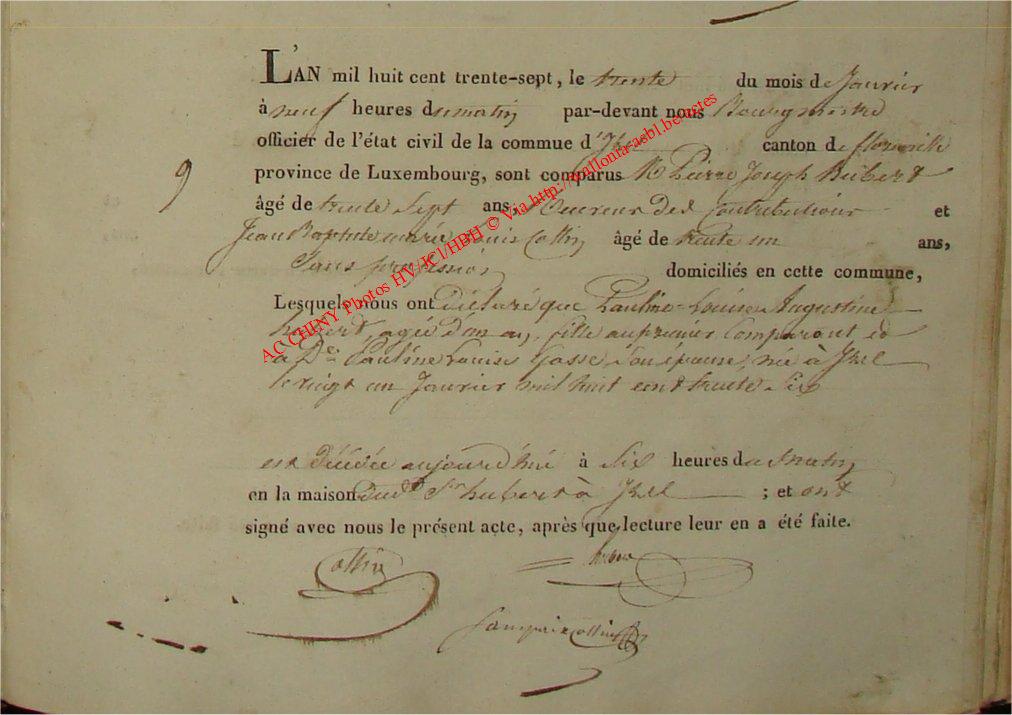 L'AN mil huit cent trente-sept, le trente du mois de Janvier
à neuf heures du matin par-devant nous Bourgmestre
officier de l'état civil de la commune d'Izel canton de florenville
9
province de Luxembourg, sont comparus M. Pierre Joseph Hubert
âgé de trente Sept ans, Receveur des Contributions et
Jean Baptiste marie Louis Collin âgé de trente un ans,
Sans profession domiciliés en cette commune,
Lesquels nous ont Déclaré que Pauline-Louise Augustine
hubert agée d'un an, fille au premier Comparant et
à De. Pauline Louise Gosse, Son épouse, née à Izel
le vingt un Janvier mil huit cent trente Six
est Décédée aujourd'hui à Six heures du matin
en la maison dud. Sr. hubert à Izel ; et ont
signé avec nous le présent acte, après que lecture leur en a été faite.
Collin hubert
Collin
AC CHINY Photos HV/ICI/HBH © Via http://wallonia-asbl.be/actes